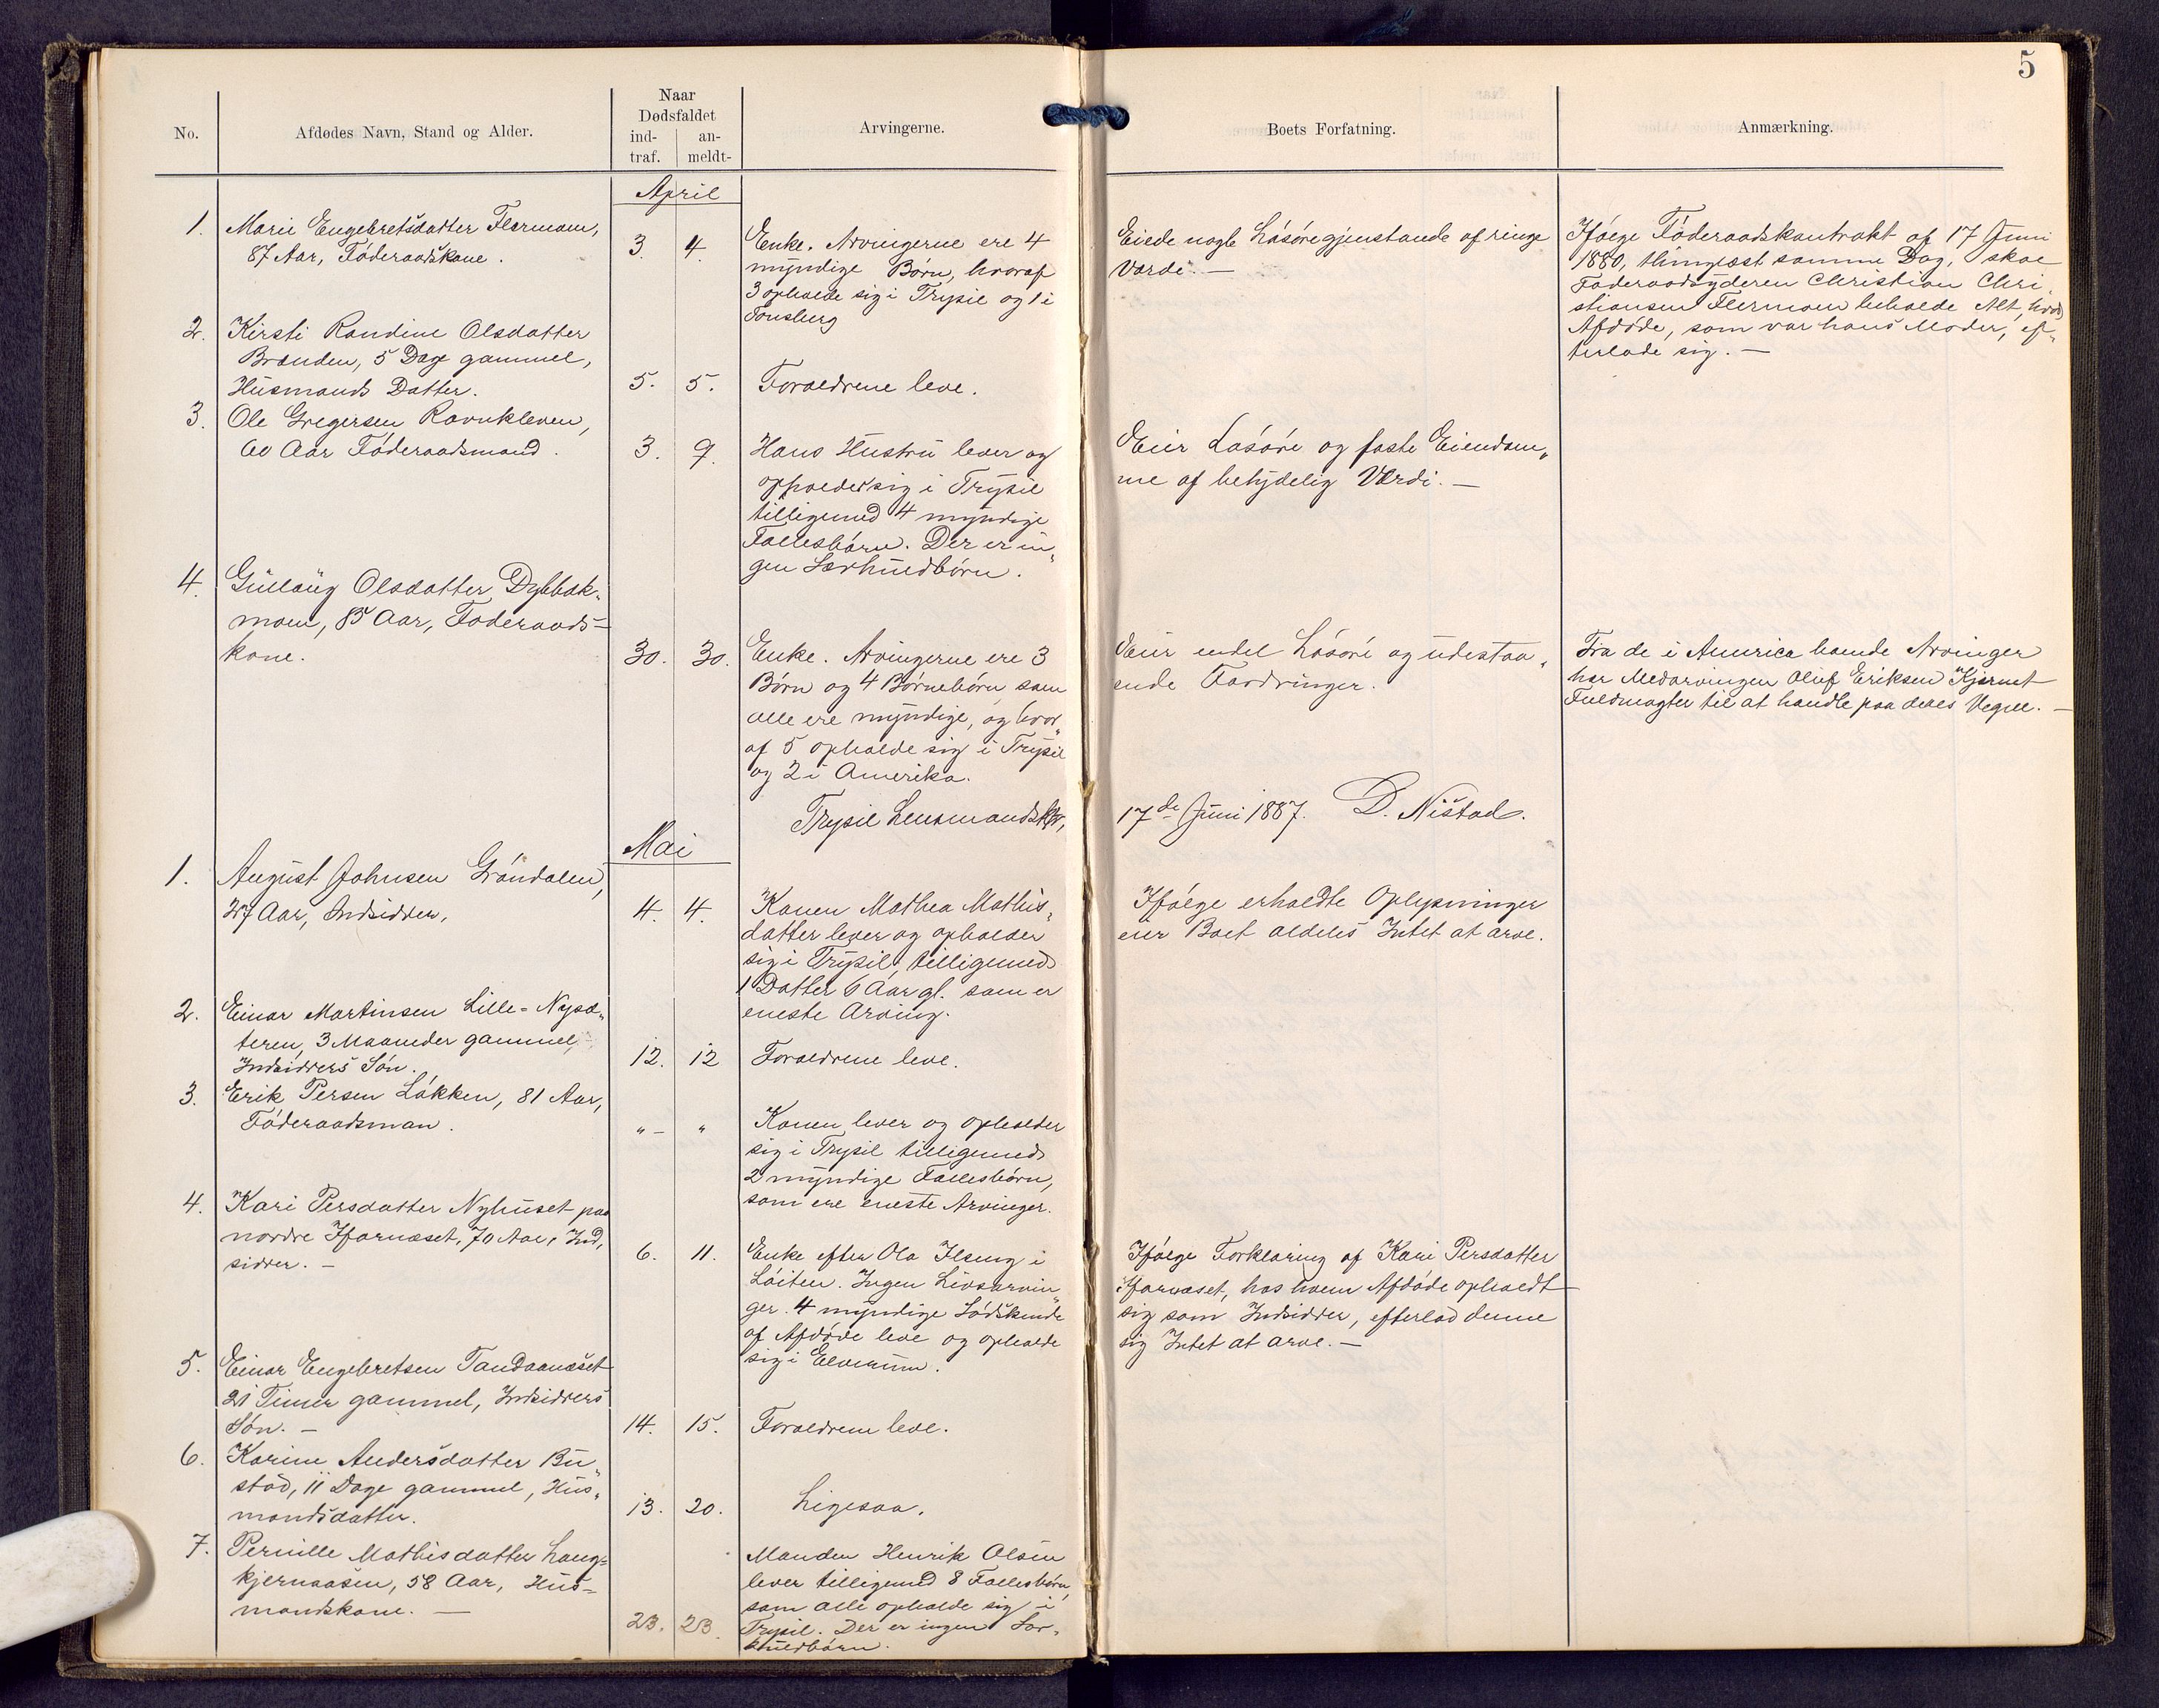 5
No.
Afdødes Navn, Stand og Alder.
Naar
Dødsfaldet
ind-
traf.
an-
meldt-
Arvingerne.
Boets Forfatning.
Anmærkning.
April
1.
Marie Engebretsdatter Flermoen,
87 Aar, Føderaadskone.
3.
4.
Enke. Arvingerne ere 4
myndige Børn, hvoraf
3 opholde sig i Trysil og 1 i
Tønsberg
Eiede nogle Løsøregjenstande af ringe
Værdi. —
Ifølge Føderaadskontrakt af 17 Juni
1880, thinglæst samme Dag, skal
Føderaadsyderen Christian Chri-
stiansen Flermoen beholde Alt, hvad
Afdøde, som var hans Moder, ef-
terlode sig. —
2.
Kirsti Randine Olsdatter
Brænden, 5 Dage gammel,
Husmands Datter.
5.
5.
Forældrene leve.
3.
Ole Gregersen Ravnkleven,
60 Aar Føderaadsmand.
3.
9.
Hans Hustru lever og
opholder sig i Trysil
tilligemed 4 myndige
Fællesbørn. Der er in-
gen Særkuldbørn.
Eier Løsøre og faste Eiendom-
me af betydelig Værdi. —
4.
Gullaug Olsdatter Dybbæk-
moen, 85 Aar, Føderaads-
kone.
30.
30.
Enke. Arvingerne ere 3
Børn og 4 Børnebørn som
alle ere myndige, og hvor-
af 5 opholde sig i Trysil
og 2 i Amerika.
Eier endel Løsøre og udestaa-
ende Fordringer.
Fra de i America boende Arvinger
har Medarvingen Oluf Eriksen Kjernet
Fuldmagter til at handle paa deres Vegne. —
Trysil Lensmandsktr, 17de Juni 1887. D. Nistad.
Mai
1.
August Johnsen Grøndalen,
27 Aar, Indsidder,
4.
4.
Konen Mathea Mathis-
datter lever og opholder
sig i Trysil, tilligemed
1 Datter 6 Aar gl. som er
eneste Arving.
Ifølge erholdte Oplysninger
eier Boet aldeles Intet at arve.
2.
Einar Martinsen Lille-Nysæ-
teren, 3 Maaneder gammel,
Indsidders Søn.
12.
12
Forældrene leve.
3.
Erik Persen Løkken, 81 Aar,
Føderaadsman.
" —
"
Konen lever og opholder
sig i Trysil tilligemed
2 myndige Fællesbørn,
som ere eneste Arvinger.
4.
Kari Persdatter Nyhuset paa
nordre Ifarnæset, 70 Aar, Ind-
sidder. —
6.
11.
Enke efter Ola Ilseng i
Løiten. Ingen Livsarvin-
ger. 4 myndige Sødskende
af Afdøde leve og opholde
sig i Elverum.
Ifølge Forklaring af Kari Persdatter
Ifarnæset, hos hvem Afdøde opholdt
sig som Indsidder, efterlod denne
sig Intet at arve. —
5.
Einar Engebretsen Tandaanæset
21 Timer gammel, Indsidders
Søn. —
14.
15.
Forældrene leve.
6.
Karine Andersdatter Bu-
stad, 11 Dage gammel, Hus-
mandsdatter.
13.
20.
Ligesaa.
7.
Pernille Mathisdatter Lang-
kjernaasen, 58 Aar, Hus-
mandskone. —
23.
23.
Manden Henrik Olsen
lever tilligemed 8 Fællesbørn,
som alle opholde sig i
Trysil. Der er ingen Sær-
kuldbørn.